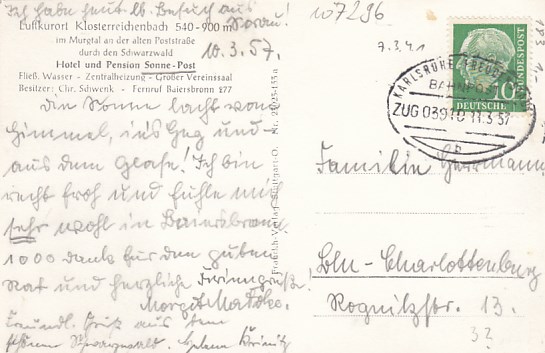 Ich habe heut lb. Besuch aus
Sorau!
Luftkurort Klosterreichenbach 540-900 m
im Murgtal an der alten Poststraße
durch den Schwarzwald
Hotel und Pension Sonne-Post
Fließ. Wasser - Zentralheizung - Großer Vereinssaal
Besitzer: Chr. Schwenk - Fernruf Baiersbronn 277
10.3.57.
die Sonne lacht vom
Himmel, ins Zug und -
aus dem Glase! Ich bin
recht froh und fühle mich
sehr wohl in Baiersbronn
1000 dank für den guten
Rat und herzliche
Margot
Gruß aus dem
schönen Schwarzwald.
Nr. 25025-133a
Stuttgart-O.
107296
7.3.41
KARLSRUHE
BAHNPOST
ZUG 03910 11.3.57
10
DEUTSCHE BUNDESPOST
Familie Herrmann
Bln-Charlottenburg
Rognitzstr. 13.
3?